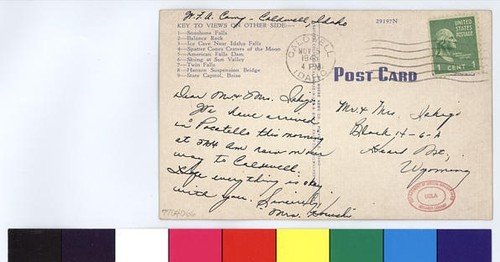 W.F.A. Camp - Caldwell, Idaho
KEY TO VIEWS ON OTHER SIDE:—
1—Shoshone Falls
2—Balance Rock
3—Ice Cave Near Idaho Falls
4—Spatter Cones Craters of the Moon
5—American Falls Dam
6—Skiing at Sun Valley
7—Twin Falls
8—Hansen Suspension Bridge
9—State Capitol, Boise
29197N
CALDWELL
NOV
4 PM
IDAHO
1 CENT 1
POST CARD
Dear Mr & Mrs.
We have arrived
in Pocatello this morning
at AM now on our
way to Caldwell.
Hope everything is okay
with you. Sincerely,
Mrs.
Mr. & Mrs.
Block 14-6-A
Heart Mt.,
Wyoming